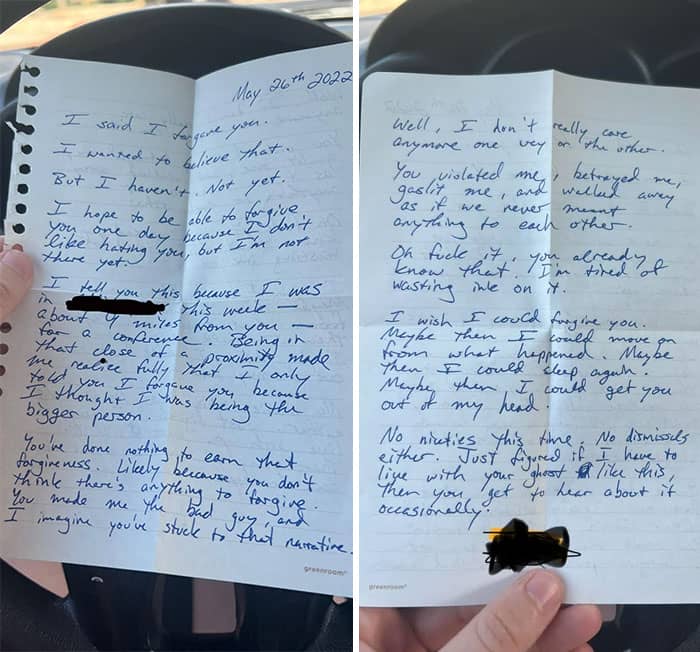 May 26th 2022
I said I forgave you.
I wanted to believe that.
But I haven't. Not yet.
I hope to be able to forgive
you one day because I don't
like hating you, but I'm not
there yet.
I tell you this because I was
in this week —
about 4 miles from you —
for a conference. Being in
that close of a proximity made
me realize fully that I only
told you I forgave you because
I thought I was being the
bigger person.
You've done nothing to earn that
forgiveness. Likely because you don't
think there's anything to forgive.
You made me the bad guy, and
I imagine you've stuck to that narrative.
greenroom®
Well, I don't really care
anymore one way or the other.
You violated me, betrayed me,
gaslit me, and walked away
as if we never meant
anything to each other.
Oh fuck it, you already
know that. I'm tired of
wasting ink on it.
I wish I could forgive you.
Maybe then I could move on
from what happened. Maybe
then I could sleep again.
Maybe then I could get you
out of my head.
No niceties this time. No dismissals
either. Just figured if I have to
live with your ghost like this,
then you get to hear about it
occasionally.
greenroom®